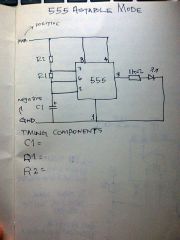 555 ASTABLE MODE
POSITIVE
R2
R1
8
4
7
6
2
555
3
1
NEGATIVE
C1
GND
TIMING COMPONENTS
C1 =
R1 =
R2 =